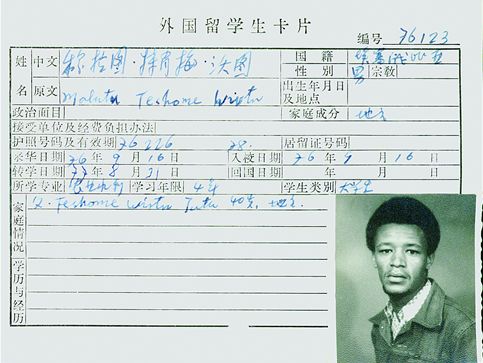 外国留学生卡片
编号 76123
姓 中文 穆拉图·特肖梅·沃图 国籍 埃塞俄比亚
性别 男 宗教
名 原文 Malatu Teshome Wirtu 出生年月日及地点
政治面目 家庭成分 地主
接受单位及经费负担办法
护照号码及有效期 76226 78. 居留证号码
来华日期 76年9月16日 入校日期 76年9月16日
转学日期 77年8月31日 回国日期 年 月 日
所学专业 学习年限 4年 学生类别 大学生
家庭情况 父. Teshome Wirtu Tutu 40岁, 地主.
学历与经历